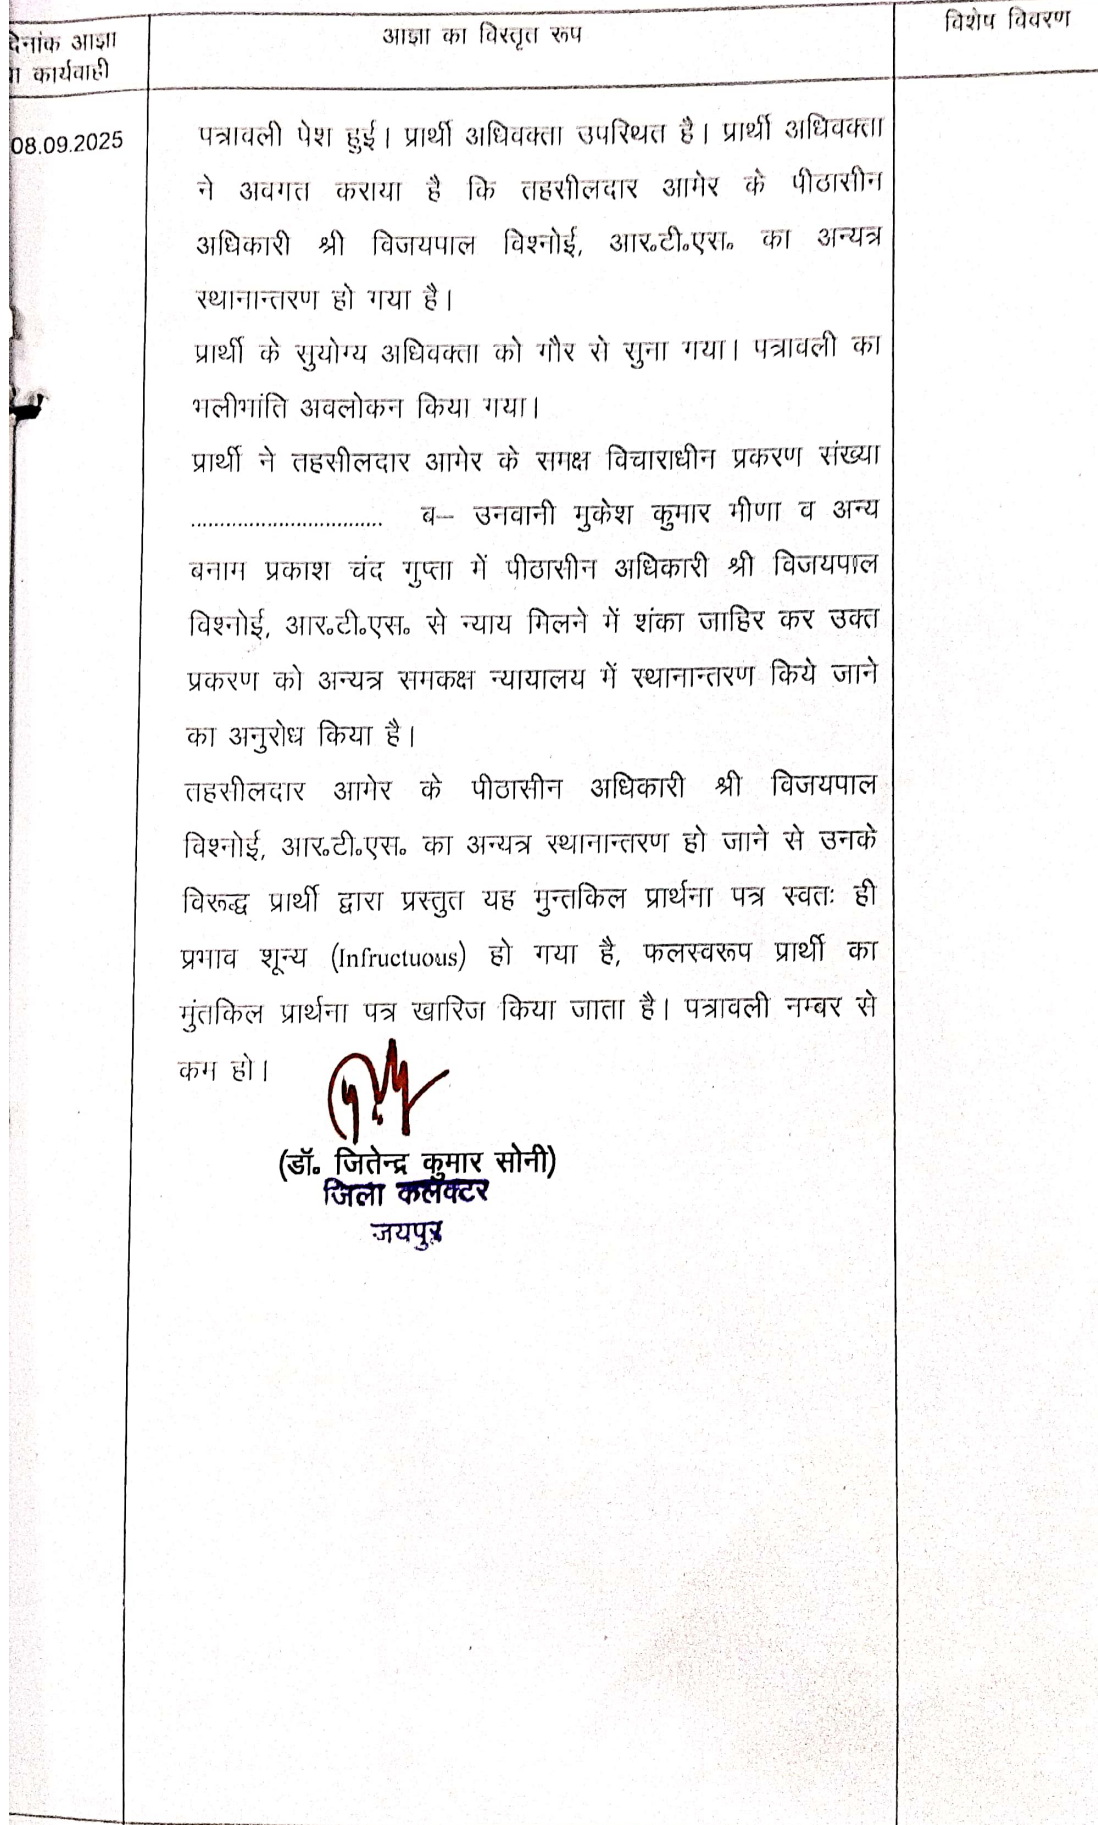 दिनांक आज्ञा
या कार्यवाही
आज्ञा का विस्तृत रूप
विशेष विवरण
08.09.2025
पत्रावली पेश हुई। प्रार्थी अधिवक्ता उपस्थित है। प्रार्थी अधिवक्ता
ने अवगत कराया है कि तहसीलदार आमेर के पीठासीन
अधिकारी श्री विजयपाल विश्नोई, आर॰टी॰एस॰ का अन्यत्र
स्थानान्तरण हो गया है।
प्रार्थी के सुयोग्य अधिवक्ता को गौर से सुना गया। पत्रावली का
भलीभांति अवलोकन किया गया।
प्रार्थी ने तहसीलदार आमेर के समक्ष विचाराधीन प्रकरण संख्या
................................. ब– उनवानी मुकेश कुमार मीणा व अन्य
बनाम प्रकाश चंद गुप्ता में पीठासीन अधिकारी श्री विजयपाल
विश्नोई, आर॰टी॰एस॰ से न्याय मिलने में शंका जाहिर कर उक्त
प्रकरण को अन्यत्र समकक्ष न्यायालय में स्थानान्तरण किये जाने
का अनुरोध किया है।
तहसीलदार आमेर के पीठासीन अधिकारी श्री विजयपाल
विश्नोई, आर॰टी॰एस॰ का अन्यत्र स्थानान्तरण हो जाने से उनके
विरूद्ध प्रार्थी द्वारा प्रस्तुत यह मुन्तकिल प्रार्थना पत्र स्वतः ही
प्रभाव शून्य (Infructuous) हो गया है, फलस्वरूप प्रार्थी का
मुंतकिल प्रार्थना पत्र खारिज किया जाता है। पत्रावली नम्बर से
कम हो।
(डॉ॰ जितेन्द्र कुमार सोनी)
जिला कलक्टर
जयपुर